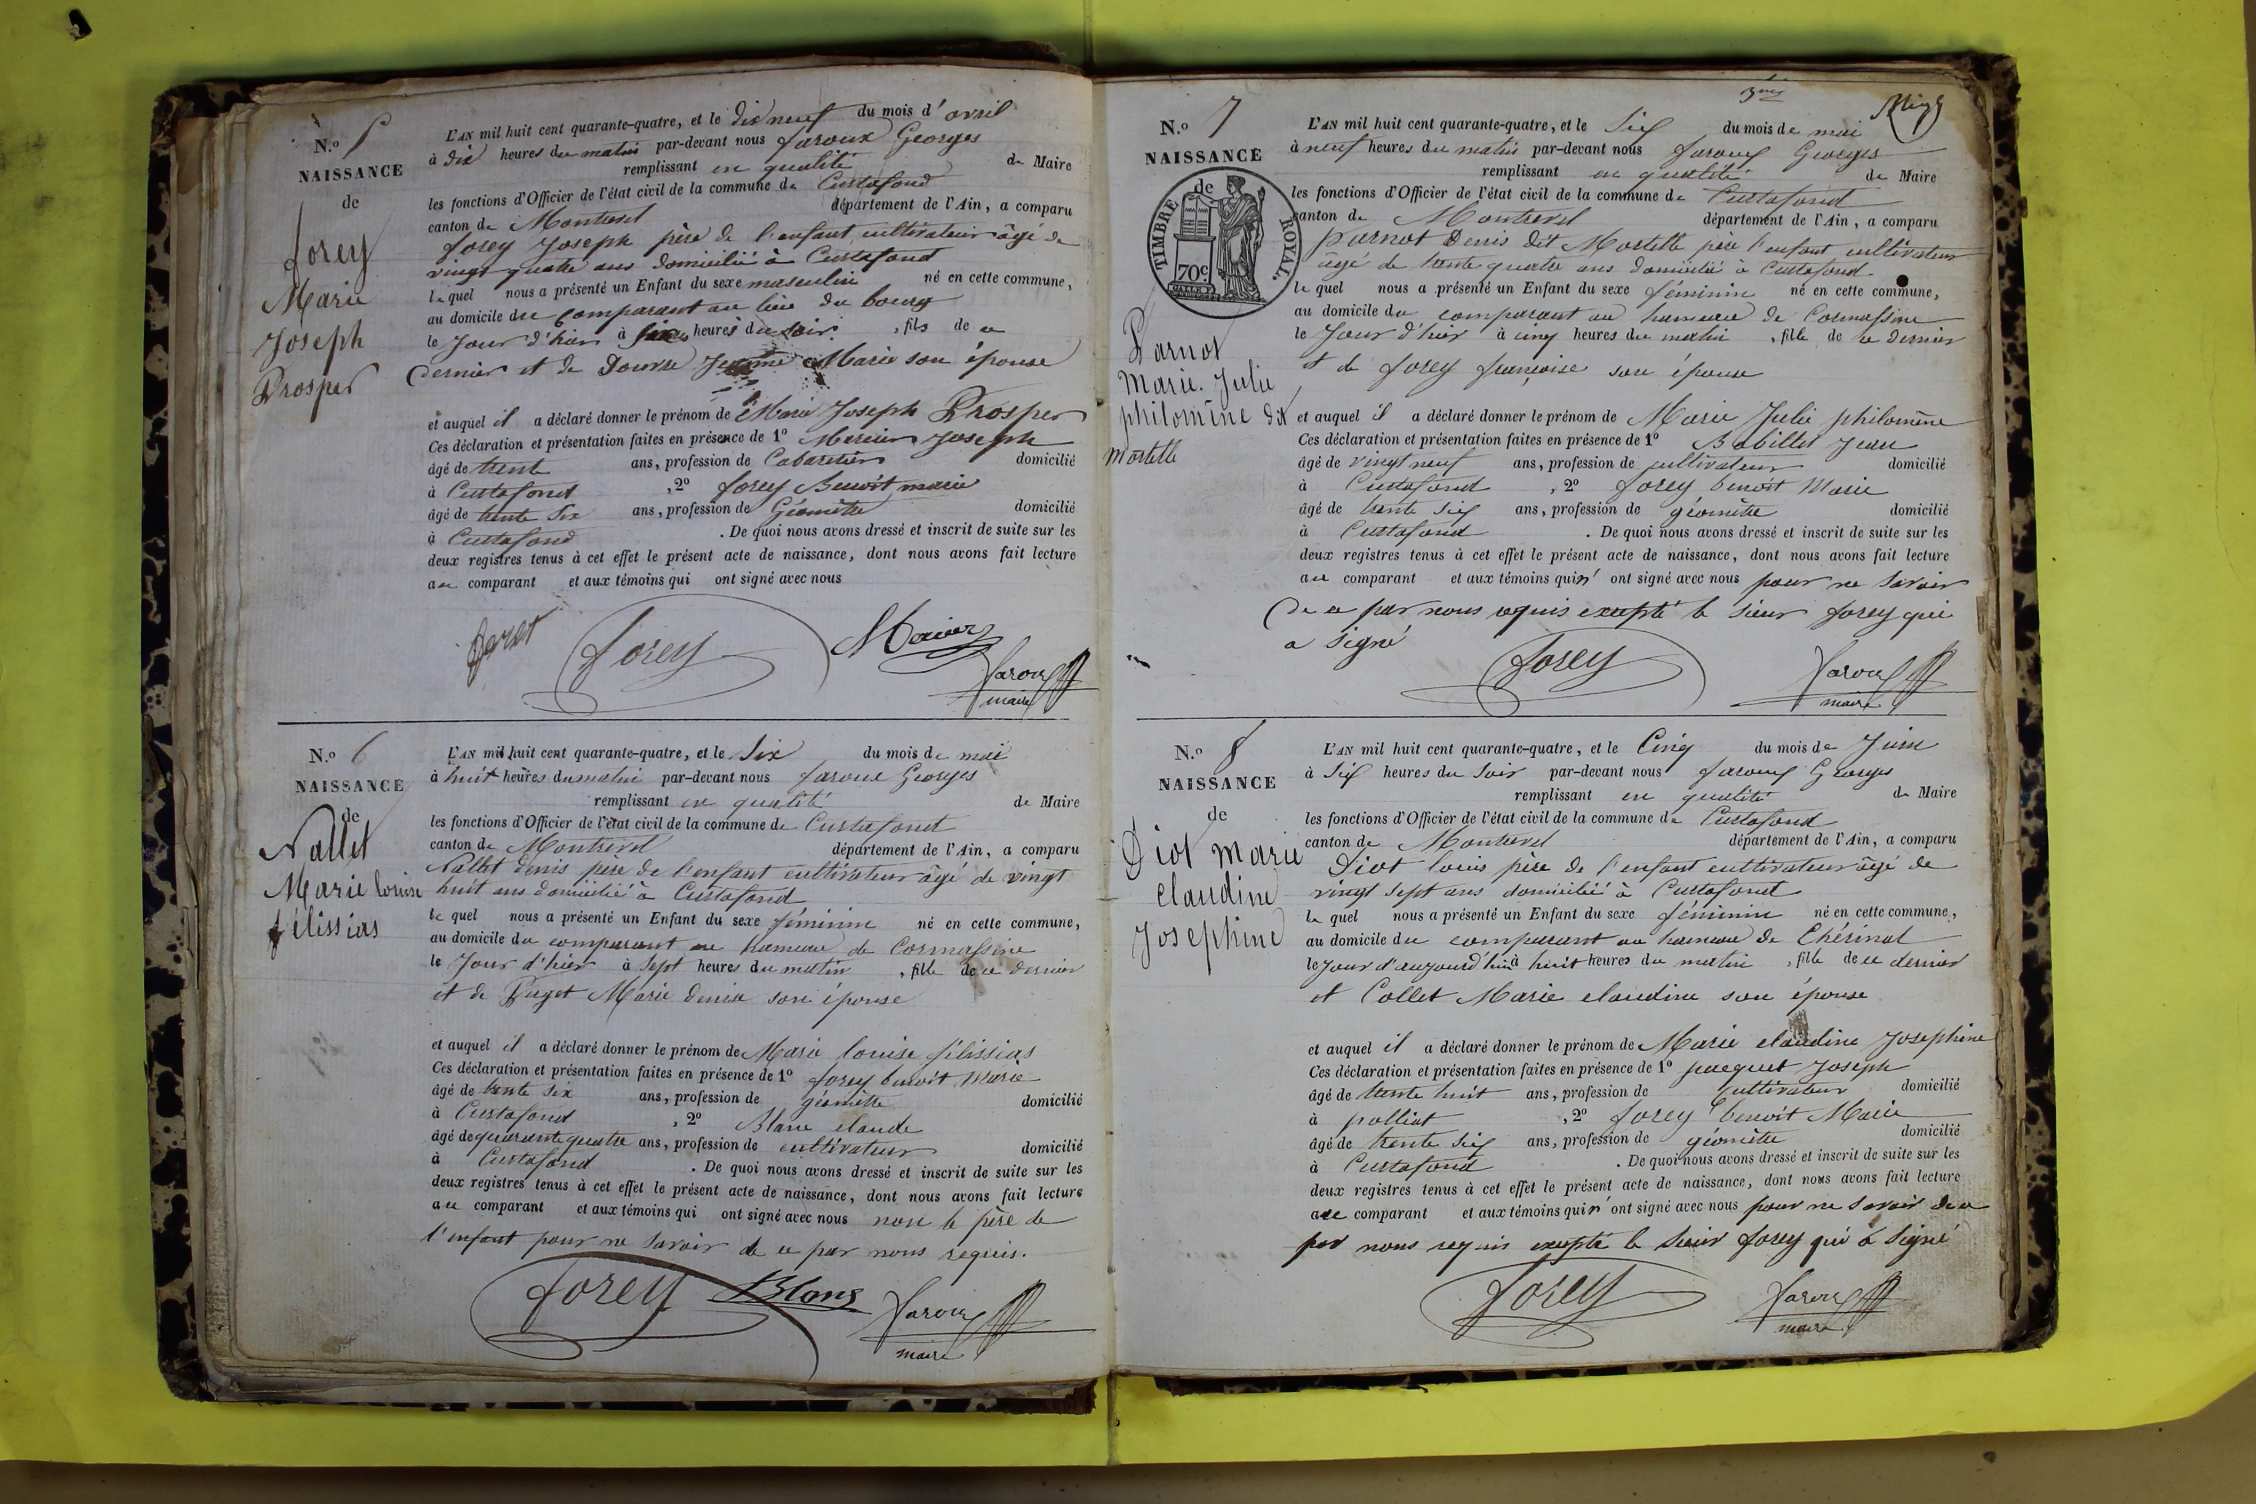 N.o 5
NAISSANCE
de
forey
Marie
Joseph
Prosper
L'AN mil huit cent quarante-quatre, et le dix neuf du mois d'avril
à dix heures du matin par-devant nous faroux Georges
remplissant en qualité de Maire
les fonctions d'Officier de l'état civil de la commune de Curtafond
canton de Montrevel département de l'Ain, a comparu
forey Joseph père de l'enfant cultivateur âgé de
vingt quatre ans domicilié à Curtafond
le quel nous a présenté un Enfant du sexe masculin né en cette commune,
au domicile du comparant au lieu du bourg
le Jour d'hier à heures du soir, fils de ce
dernier et de Marie son épouse
et auquel il a déclaré donner le prénom de Marie Joseph Prosper
Ces déclaration et présentation faites en présence de 1o Mercier Joseph
âgé de trente ans, profession de Cabaretier domicilié
à Curtafond, 2o forey Benoît marie
âgé de trente Six ans, profession de Géomètre domicilié
à Curtafond. De quoi nous avons dressé et inscrit de suite sur les
deux registres tenus à cet effet le présent acte de naissance, dont nous avons fait lecture
au comparant et aux témoins qui ont signé avec nous
forey Mercier
faroux
maire
N.o 6
NAISSANCE
de
Nallet
Marie louise
félissias
L'AN mil huit cent quarante-quatre, et le Six du mois de mai
à huit heures du matin par-devant nous faroux Georges
remplissant en qualité de Maire
les fonctions d'Officier de l'état civil de la commune de Curtafond
canton de Montrevel département de l'Ain, a comparu
Nallet denis père de l'enfant cultivateur âgé de vingt
huit ans domicilié à Curtafond
le quel nous a présenté un Enfant du sexe féminin né en cette commune,
au domicile du comparant au hameau de Cormassine
le Jour d'hier à Sept heures du matin, fille de ce dernier
et de Puget Marie denise son épouse
et auquel il a déclaré donner le prénom de Marie louise félissias
Ces déclaration et présentation faites en présence de 1o forey benoît Marie
âgé de trente six ans, profession de géomètre domicilié
à Curtafond, 2o Blanc claude
âgé de quarante quatre ans, profession de cultivateur domicilié
à Curtafond. De quoi nous avons dressé et inscrit de suite sur les
deux registres tenus à cet effet le présent acte de naissance, dont nous avons fait lecture
au comparant et aux témoins qui ont signé avec nous non le père de
l'enfant pour ne savoir de ce par nous requis.
forey Blanc faroux
maire
3me
N.o 7
NAISSANCE
de
TIMBRE ROYAL.
70c
Parnot
Marie. Julie
philomène dit
Mortelle
L'AN mil huit cent quarante-quatre, et le Six du mois de mai
à neuf heures du matin par-devant nous faroux Georges
remplissant en qualité de Maire
les fonctions d'Officier de l'état civil de la commune de Curtafond
canton de Montrevel département de l'Ain, a comparu
Parnot Denis dit Mortelle père l'enfant cultivateur
âgé de trente quatre ans domicilié à Curtafond
le quel nous a présenté un Enfant du sexe féminin né en cette commune,
au domicile du comparant au hameau de Cormassine
le Jour d'hier à cinq heures du matin, fille de ce dernier
et de forey françoise son épouse
et auquel il a déclaré donner le prénom de Marie Julie philomène
Ces déclaration et présentation faites en présence de 1o Babillet Jean
âgé de vingt neuf ans, profession de cultivateur domicilié
à Curtafond, 2o forey benoît Marie
âgé de trente six ans, profession de géomètre domicilié
à Curtafond. De quoi nous avons dressé et inscrit de suite sur les
deux registres tenus à cet effet le présent acte de naissance, dont nous avons fait lecture
au comparant et aux témoins qui n'ont signé avec nous pour ne savoir
de ce par nous requis excepté le sieur forey qui
a signé
forey faroux
maire
N.o 8
NAISSANCE
de
Diot Marie
claudine
Josephine
L'AN mil huit cent quarante-quatre, et le Cinq du mois de Juin
à Six heures du Soir par-devant nous faroux Georges
remplissant en qualité de Maire
les fonctions d'Officier de l'état civil de la commune de Curtafond
canton de Montrevel département de l'Ain, a comparu
Diot louis père de l'enfant cultivateur âgé de
vingt sept ans domicilié à Curtafond
le quel nous a présenté un Enfant du sexe féminin né en cette commune,
au domicile du comparant au hameau de Chérinal
le Jour d'aujourd'hui à huit heures du matin, fille de ce dernier
et Collet Marie claudine son épouse
et auquel il a déclaré donner le prénom de Marie claudine Josephine
Ces déclaration et présentation faites en présence de 1o pacquet Joseph
âgé de trente huit ans, profession de cultivateur domicilié
à polliat, 2o forey benoît Marie
âgé de trente six ans, profession de géomètre domicilié
à Curtafond. De quoi nous avons dressé et inscrit de suite sur les
deux registres tenus à cet effet le présent acte de naissance, dont nous avons fait lecture
au comparant et aux témoins qui n'ont signé avec nous pour ne savoir de ce
par nous requis excepté le sieur forey qui a signé
forey faroux
maire